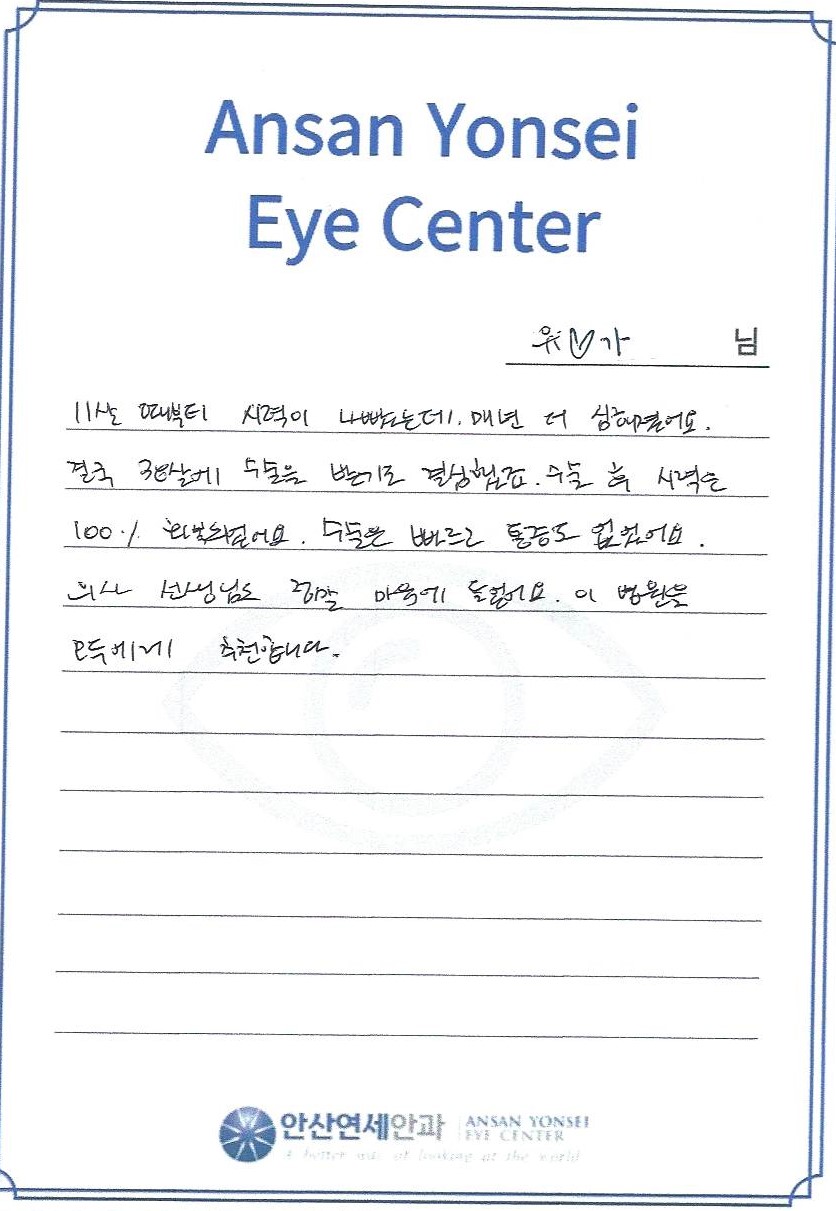 Ansan Yonsei
Eye Center
유♡가 님
11살 때부터 시력이 나빴는데, 매년 더 심해졌어요.
결국 38살에 수술을 받기로 결심했죠. 수술 후 시력은
100% 회복되었어요. 수술은 빠르고 통증도 없었어요.
의사 선생님도 정말 마음에 들었어요. 이 병원을
모두에게 추천합니다.
안산연세안과 ANSAN YONSEI
EYE CENTER
A better way of looking at the world